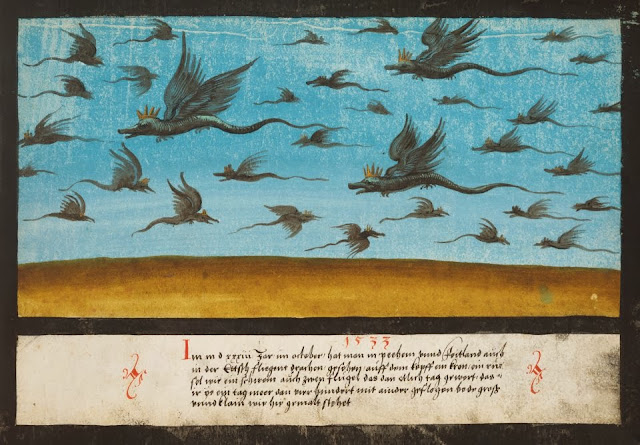 1533
Im m d xxxiii Jar im october, hat man in pechem vnnd Foitland auch
in der fliegent drachen gesehen, auff dem kopff ein kron, en rue=
sel wie ein schwein auch zwen flugel das dan etlich tag gewert, das
ir ein tag meer dan vier hundert mit ainder geflogen groß
vnnd klain wie hie gemalt stehet